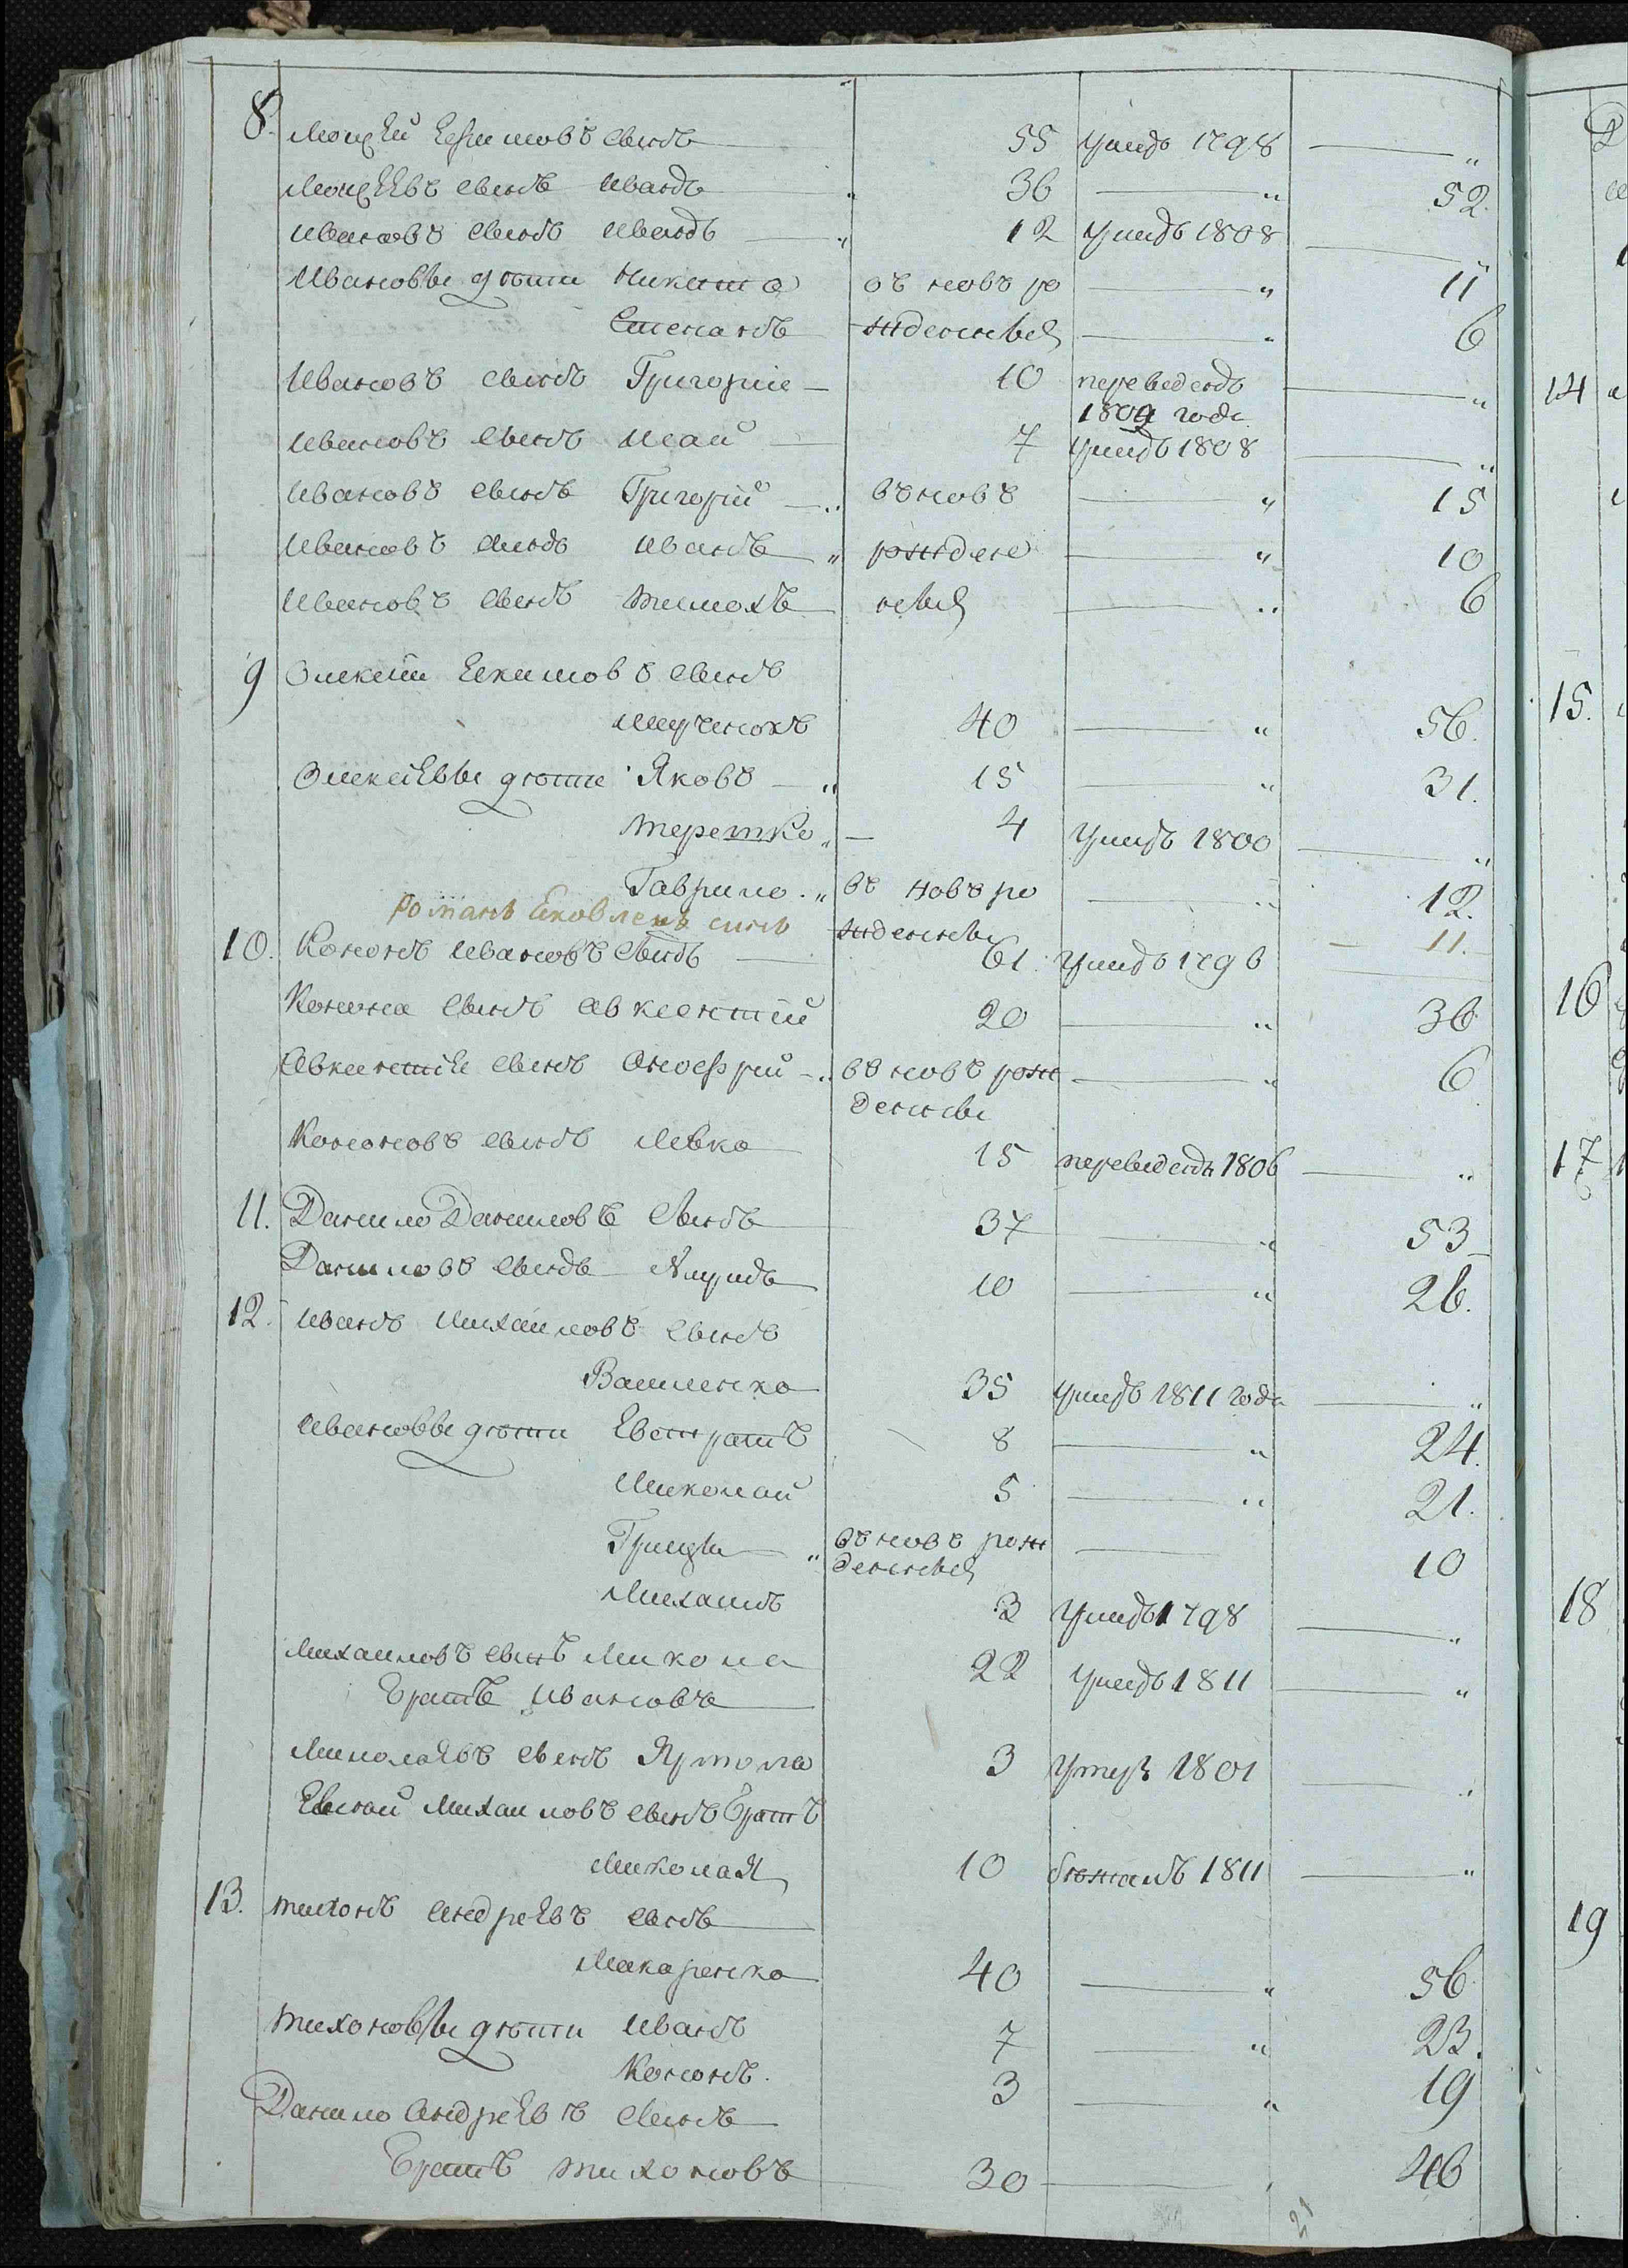 8. Моисей Ефимовъ сынъ 55 умеръ 1798 — „
Моисѣевъ сынъ Иванъ 36 — „ 52.
Ивановъ сынъ Иванъ — „ 12 умеръ 1808 — „
Ивановы дѣти Никита въ новь ро — „ 11
Степанъ жденныя — „ 6
Ивановъ сынъ Григорие — 10 переведенъ — „
1809 года
Ивановъ сынъ Исай — 7 умеръ 1808 — „
Ивановъ сынъ Григорий — „ въновь — „ 15
Ивановъ сынъ Иванъ „ рожден — „ 10
Ивановъ сынъ Тимохъ ныя — „ 6
9 Олексѣй Екимовъ сынъ
40 — „ 56.
Олексѣевы дѣти Яковъ — „ 15 — „ 31.
Терешко „ — 4 умеръ 1800 — „
Гаврило „ въ новь ро — „ 12.
Романъ Яковлевъ синъ жденны — 11.
10. Кононъ Ивановъ сынъ — 61 умеръ 1796
Конона сынъ Авксентий 20 — „ 36
Авксентиѣ сынъ Онофрий — „ въ новь рож — „ 6
денны
Кононовъ сынъ Левко 15 переведенъ 1806 — „
11. Данило Даниловъ сынъ 37 — „ 53
Даниловъ сынъ 10 — „ 26.
12. Иванъ Михайловъ сынъ
Василенко 35 умеръ 1811 года — „
Ивановы дѣти Евстратъ 8 — „ 24.
Миколай 5 — „ 21.
Грицы — „ въ новь рож — 10
денныя
Михаилъ 3 умеръ 1798 — „
Михаиловъ сынъ Микола 22 умеръ 1811 — „
братъ Ивановъ
Миколаѣвъ сынъ Ярмола 3 умеръ 1801 — „
Михаиловъ сынъ братъ
Миколая 10 бѣжалъ 1811 — „
13. Тихонъ Андреѣвъ сынъ
Макаренко 40 — „ 56
Тихоновы дѣти Иванъ 7 — „ 23.
Кононъ. 3 — „ 19
Данило Андреѣвъ сынъ
братъ Тихоновъ 30 — 46
21
14
15.
16
17
18
19